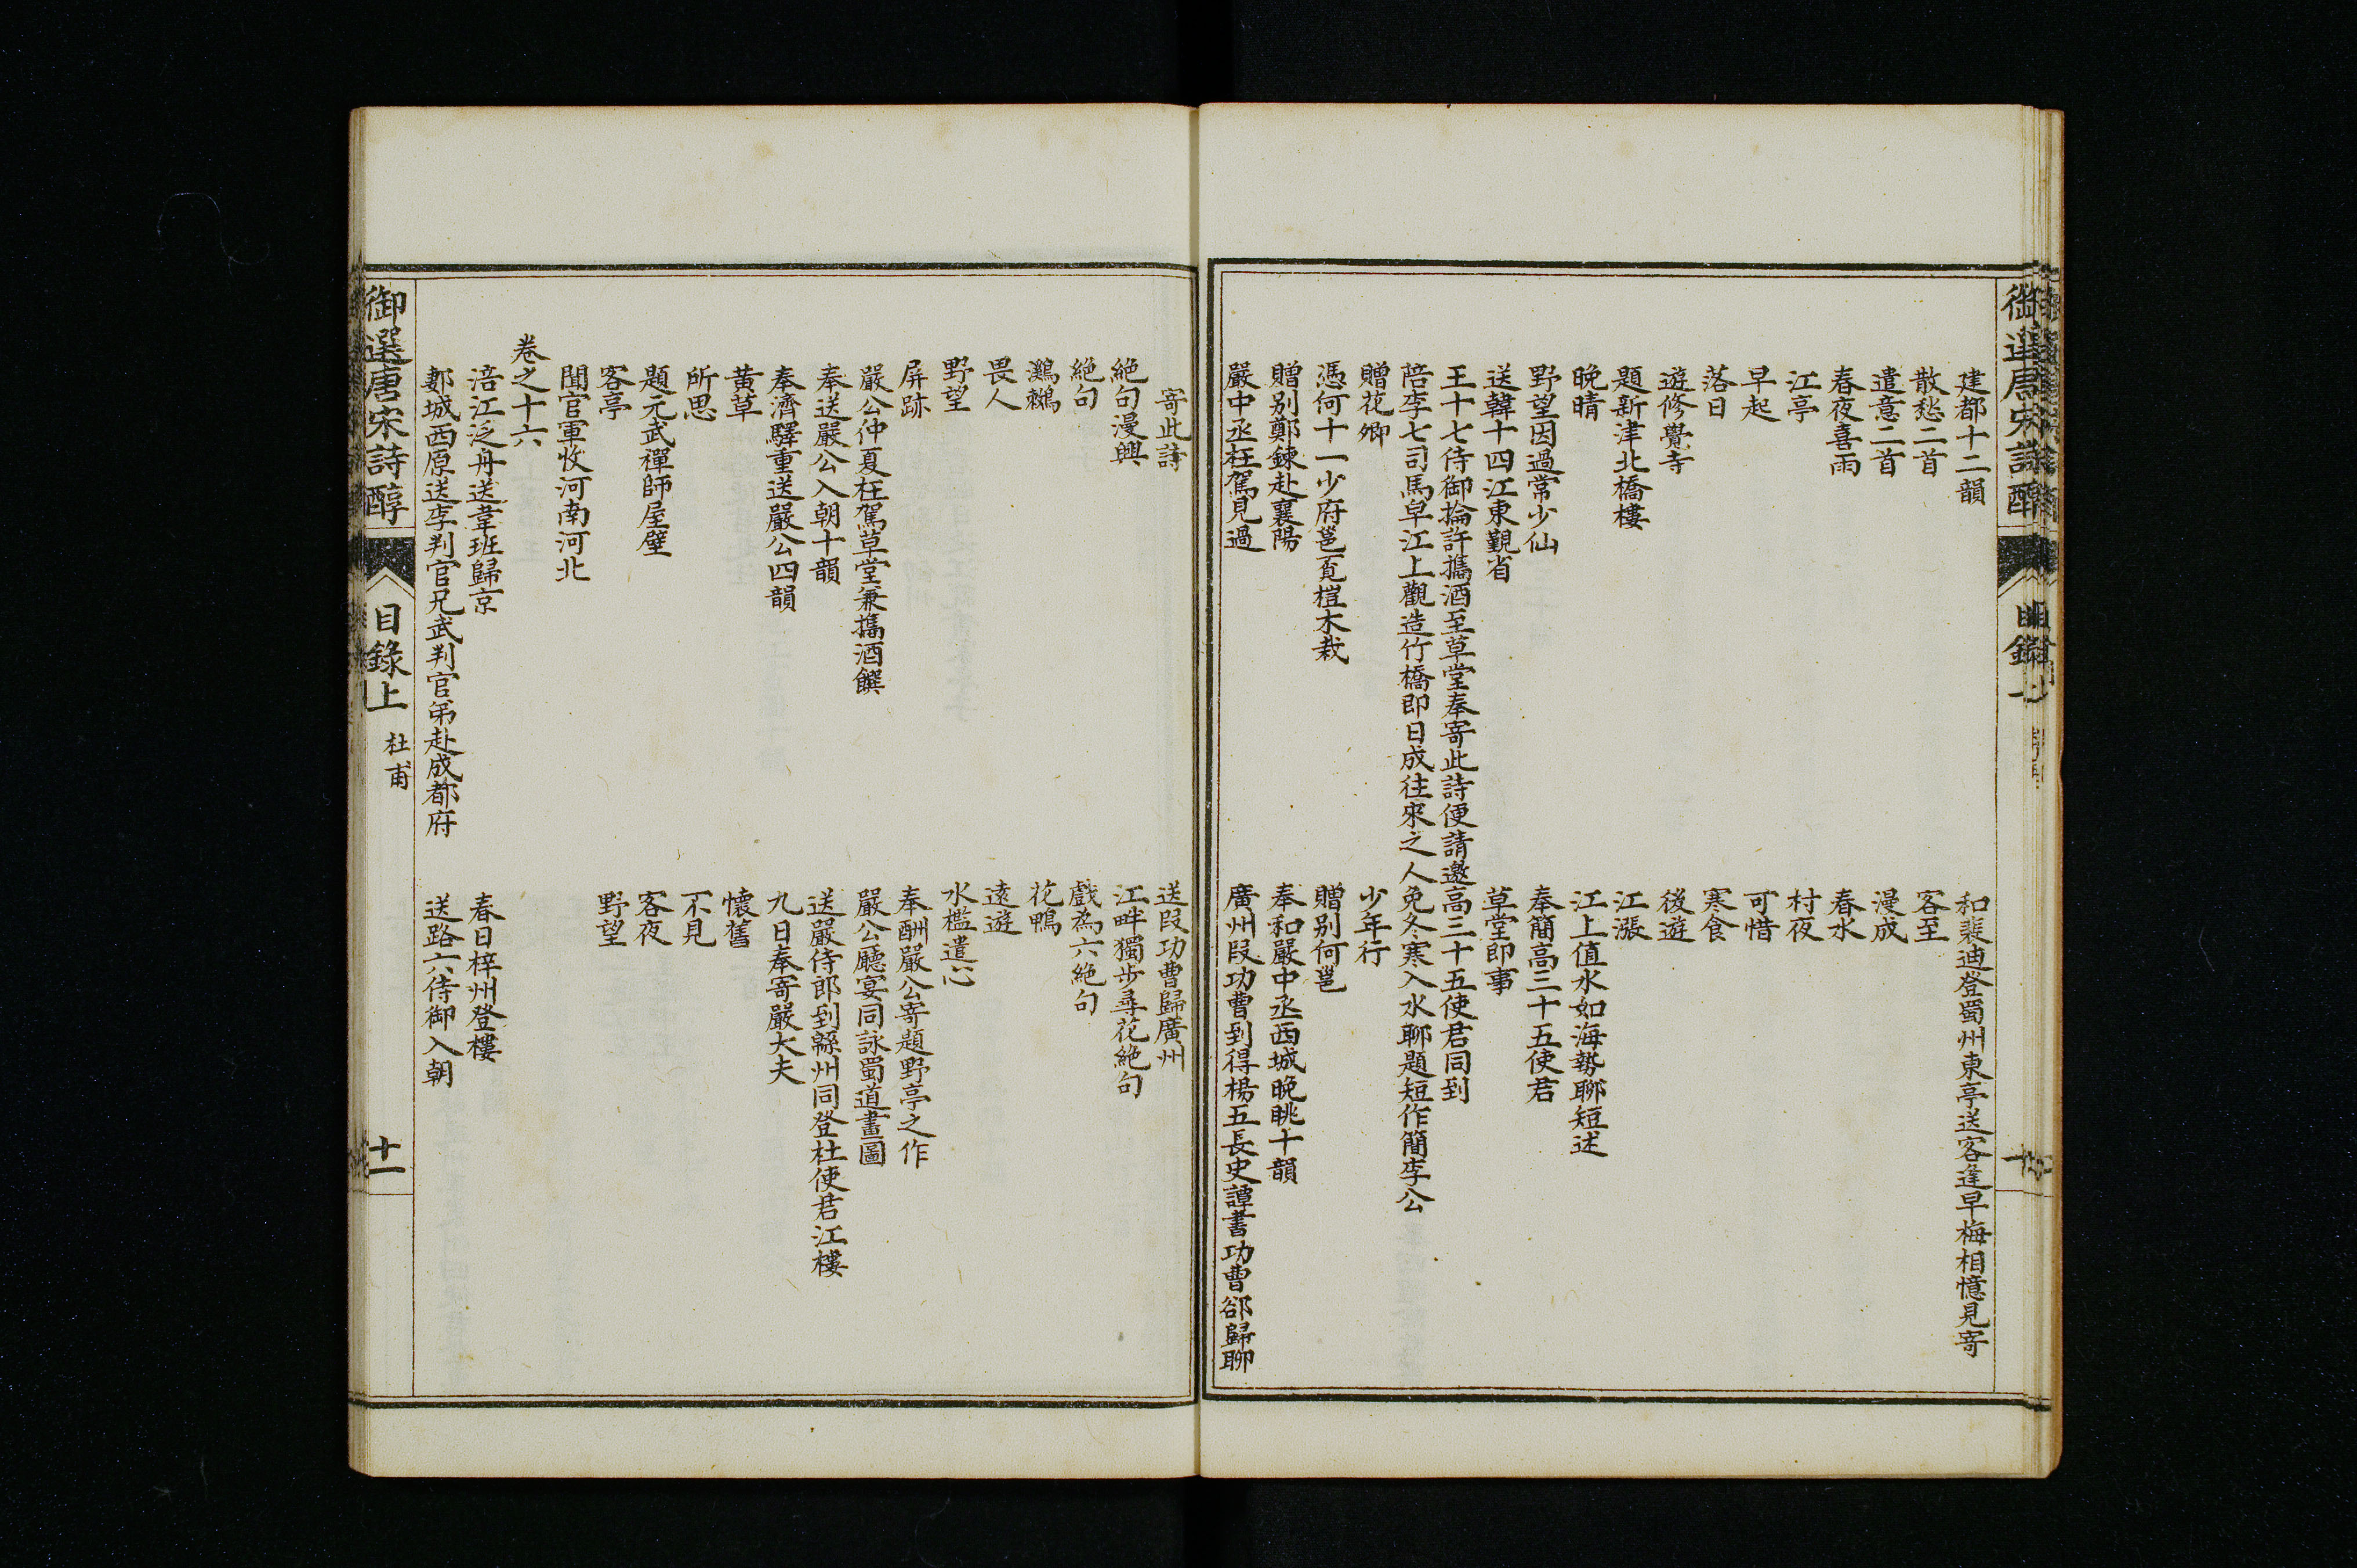 建都十二韻
和裴迪登蜀州東亭送客逢早梅相憶見寄
散愁二首
客至
遣意二首
漫成
春夜喜雨
春水
江亭
村夜
早起
可惜
落日
寒食
遊修覺寺
後遊
題新津北橋樓
江漲
晚晴
江上值水如海勢聊短述
野望因過常少仙
奉簡高三十五使君
送韓十四江東覲省
草堂即事
王十七侍御掄許攜酒至草堂奉寄此詩便請邀高三十五使君同到
陪李七司馬皁江上觀造竹橋即日成往來之人免冬寒入水聊題短作簡李公
贈花卿
少年行
憑何十一少府邕覓榿木栽
贈别何邕
贈别鄭鍊赴襄陽
奉和嚴中丞西城晚眺十韻
嚴中丞枉駕見過
廣州叚功曹到得楊五長史譚書功曹郤歸聊
寄此詩
送叚功曹歸廣州
絶句漫興
江畔獨步尋花絶句
絶句
戲為六絶句
鸂鶒
花鴨
畏人
遠遊
野望
水檻遣心
屏跡
奉酬嚴公寄題野亭之作
嚴公仲夏枉駕草堂兼攜酒饌
嚴公廳宴同詠蜀道畫圖
奉送嚴公入朝十韻
送嚴侍郎到緜州同登杜使君江樓
奉濟驛重送嚴公四韻
九日奉寄嚴大夫
黄草
懷舊
所思
不見
題元武禪師屋壁
客夜
客亭
野望
聞官軍收河南河北
卷之十六
涪江泛舟送韋班歸京
春日梓州登樓
郪城西原送李判官兄武判官弟赴成都府
送路六侍御入朝
御選唐宋詩醇
目錄上
杜甫
十一